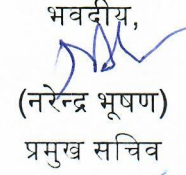 भवदीय,
(नरेन्द्र भूषण)
प्रमुख सचिव